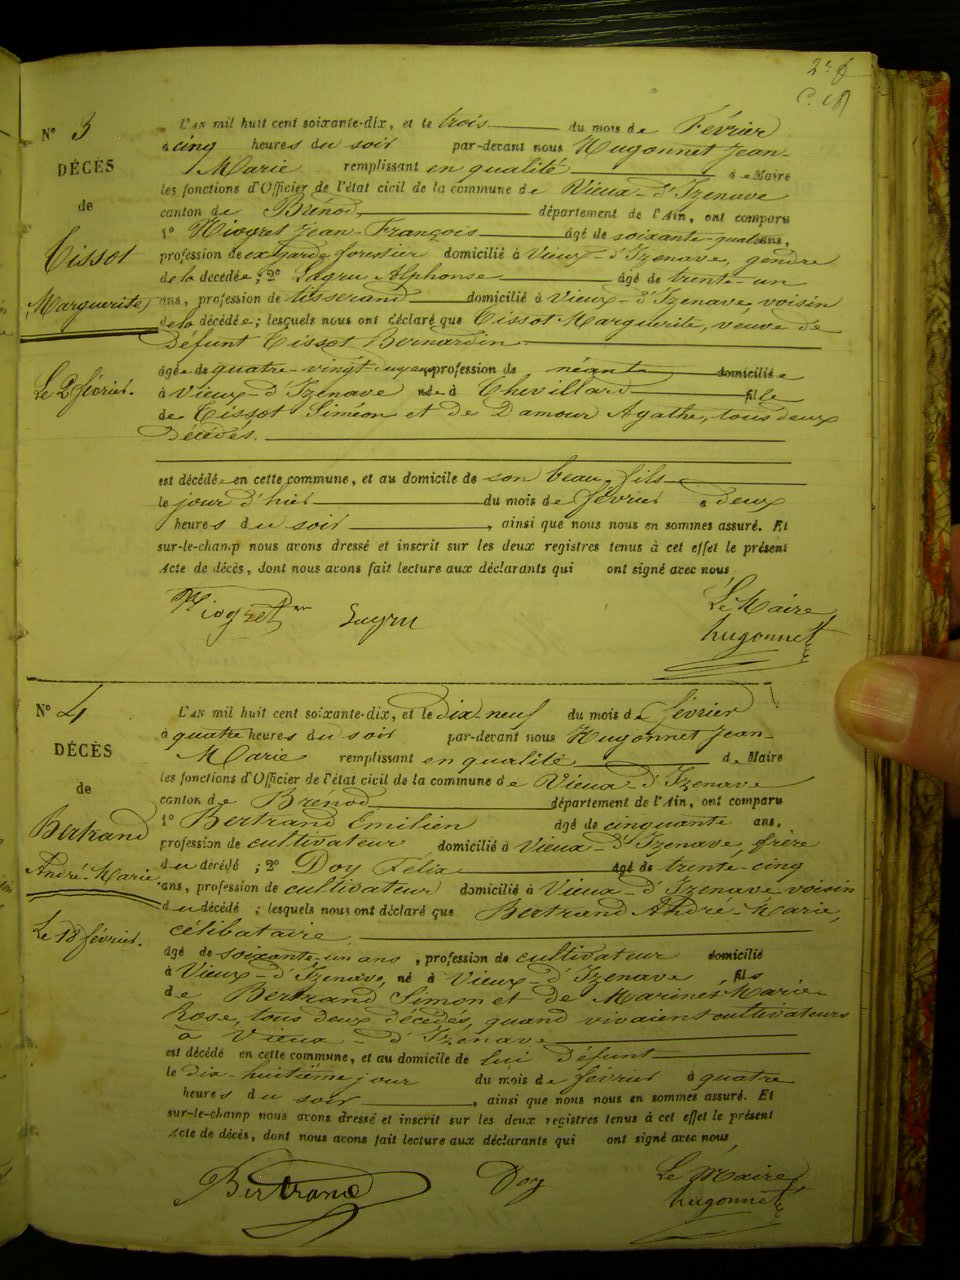 2e f
N° 3
DÉCÈS
de
Tissot
Marguerite
Le 2 février.
L'AN mil huit cent soixante-dix, et le trois du mois de Février
à cinq heures du soir par-devant nous Hugonnet Jean-
Marie remplissant en qualité de Maire
les fonctions d'Officier de l'état civil de la commune de Vieux-d'Izenave
canton de Brénod département de l'Ain, ont comparu
1° Niogret Jean-François âgé de soixante-quatre ans,
profession de ex garde forestier domicilié à Vieux-d'Izenave, gendre
de la décédée; 2° Lagru Alphonse âgé de trente-un
ans, profession de tisserand domicilié à Vieux-d'Izenave voisin
de la décédée; lesquels nous ont déclaré que Tissot Marguerite, veuve de
défunt Tissot Bernardin
âgée de quatre-vingt- ans profession de néant domicilié e
à Vieux-d'Izenave née à Chevillard fille
de Tissot Siméon et de Damour Agathe, tous deux
Décédés.
est décédée en cette commune, et au domicile de son beau-fils
le jour d'hier du mois de février à deux
heures du soir , ainsi que nous nous en sommes assuré. Et
sur-le-champ nous avons dressé et inscrit sur les deux registres tenus à cet effet le présent
Acte de décès, dont nous avons fait lecture aux déclarants qui ont signé avec nous
Niogret Lagru Le Maire
hugonnet
N° 4
DÉCÈS
de
Bertrand
André-Marie
Le 18 février.
L'AN mil huit cent soixante-dix, et le dix-neuf du mois de février
à quatre heures du soir par-devant nous Hugonnet Jean-
Marie remplissant en qualité de Maire
les fonctions d'Officier de l'état civil de la commune de Vieux-d'Izenave
canton de Brénod département de l'Ain, ont comparu
1° Bertrand Emilien âgé de cinquante ans,
profession de cultivateur domicilié à Vieux-d'Izenave, frère
du décédé; 2° Doy Félix âgé de trente-cinq
ans, profession de cultivateur domicilié à Vieux-d'Izenave voisin
du décédé; lesquels nous ont déclaré que Bertrand André-Marie,
célibataire
âgé de soixante-un ans, profession de cultivateur domicilié
à Vieux-d'Izenave, né à Vieux-d'Izenave fils
de Bertrand Simon et de Marinet Marie
Rose, tous deux décédés, quand vivaient cultivateurs
à Vieux-d'Izenave
est décédé en cette commune, et au domicile de lui défunt
le dix-huitième jour du mois de février à quatre
heures du soir , ainsi que nous nous en sommes assuré. Et
sur-le-champ nous avons dressé et inscrit sur les deux registres tenus à cet effet le présent
Acte de décès, dont nous avons fait lecture aux déclarants qui ont signé avec nous
Bertrand Doy Le Maire
hugonnet